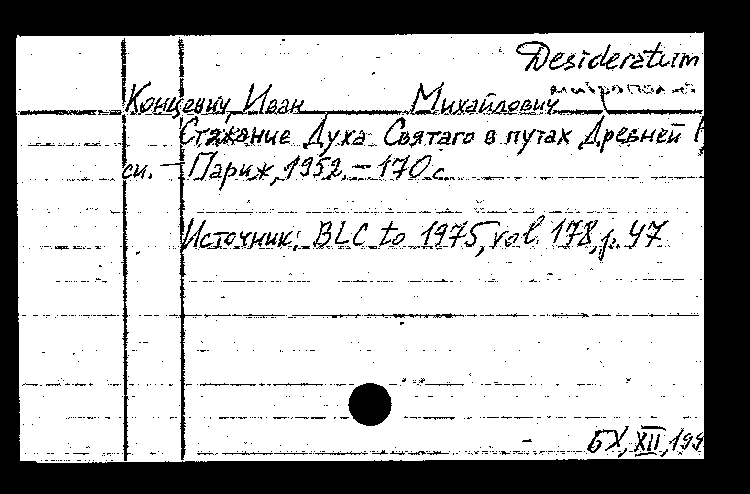 Desideratum
Концевич, Иван Михайлович
Стяжание Духа Святаго в путах Древней
си. — Париж, 1952. — 170 с.
Источник: BLC to 1975, vol. 178, p. 47
БХ, XII, 199